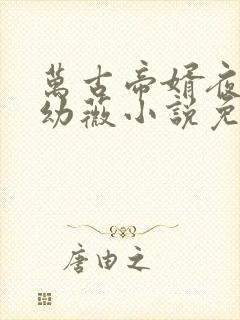 萬古帝婿夜
幼薇小說免
唐由之